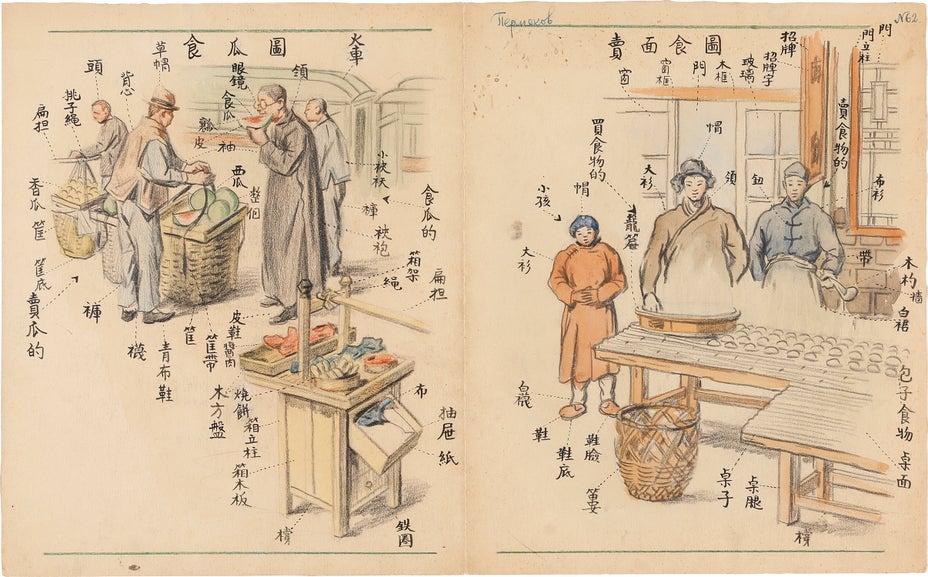 Пермяков
№62.
食瓜圖
火車
草帽
頭
背心
眼鏡
領
食瓜
挑子繩
扁担
瓤
皮
袖
西瓜
整個
小袂袄
褲
袂袍
食瓜的
香瓜
筐
筐底
賣瓜的
褲
襪
青布鞋
筐
筐帶
皮鞋
醬肉
繩
箱架
扁担
木方盤
燒餅
箱立柱
箱木板
布
抽屉
紙
鉄圈
賣面食圖
招牌
門
門立柱
窗
窗框
門
木框
玻璃
招牌字
賣食物的
帽
買食物的
大衫
領
鈕
布衫
小孩
帽
大衫
帶
木杓
墻
白裙
包子食物
桌面
白襪
鞋
鞋底
鞋臉
桌子
桌腿